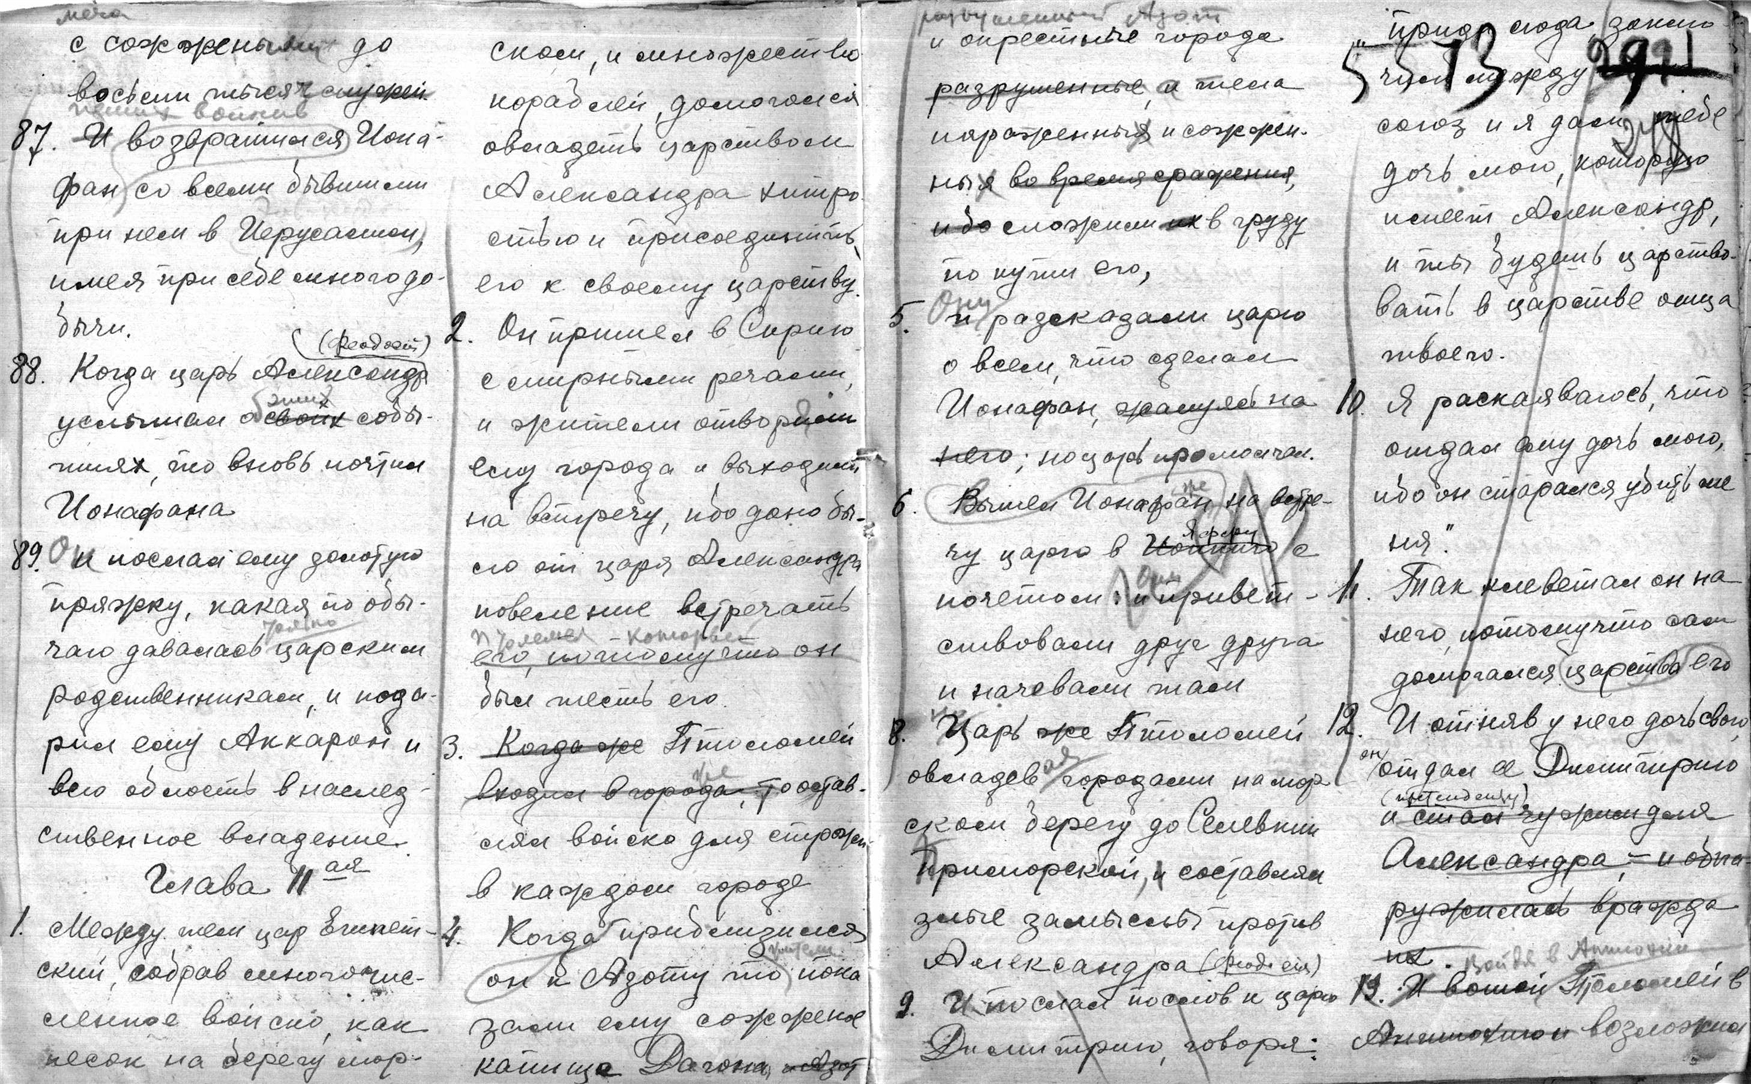 меча
с сожженными до
восьми тысяч мужей.
пеших воинов
87. И возвратился Иона-
фан со всеми бывшими
при нем в Иерусалим,
имея при себе много до-
бычи.
(Феодот)
88. Когда царь Александр
услышал о своих собы-
этих
тиях, то вновь почтил
Ионафана
89. Он и послал ему золотую
пряжку, какая по обы-
чаю давалась царским
только
родственникам, и пода-
рил ему Аккарон и
всю область в наслед-
ственное владение.
Глава 11ая
1. Между тем цар Египет-
ский, собрав многочис-
ленное войско, как
песок на берегу мор-
ском, и множество
кораблей, домогался
овладеть царством
Александра хитро
стью и присоединить
его к своему царству.
2. Он пришел в Сирию
с мирными речами,
и жители отворяли
ему города и выходили
на встречу, ибо дано бы-
ло от царя Александра
повеление встречать
Птолемея который
его, потому что он
был тесть его.
3. Когда же Птоломей
входил в города, то остав-
же
лял войско для стражи
в каждом городе
4. Когда приблизился
он к Азоту то пока
жители
зали ему сожженое
капище Дагона, и Азот
разрушенный Азот
и окрестные города
разрушенные, а тела
пораженных и сожжен-
ных во время сражения,
ибо сложили их в груду
по пути его,
5. Они и рассказали царю
о всем, что сделал
Ионафан, жалуясь на
него; но царь промолчал.
6. Вышел Ионафан на встре-
же
чу царю в Иоппию с
Яффу
почетом: и приветс-
Они
ствовали друг друга
и начевали там
8. Царь же Птоломей
но
овладев городами на мор
ском берегу до Селевкии
Приморской, и составлял
злые замыслы против
Александра (Феодота)
9. И послал послов к царю
Димитрию, говоря:
"приди сюда, заклю-
чим между
5513 291
союз и я дам тебе
дочь мою, которую
имеет Александр,
и ты будешь царство-
вать в царстве отца
твоего.
10. Я раскаяваюсь, что
отдал ему дочь мою,
ибо он старался убить ме
ня".
11. Так клеветал он на
него, потому что сам
домогался царства его
12. И отняв у него дочь свою,
он отдал ее Димитрию
(претенденту)
и стал чужим для
Александра, - и обна-
ружилась вражда
их.
войдя в Антиохию
13. И вошел Птоломей в
Антиохию возложил